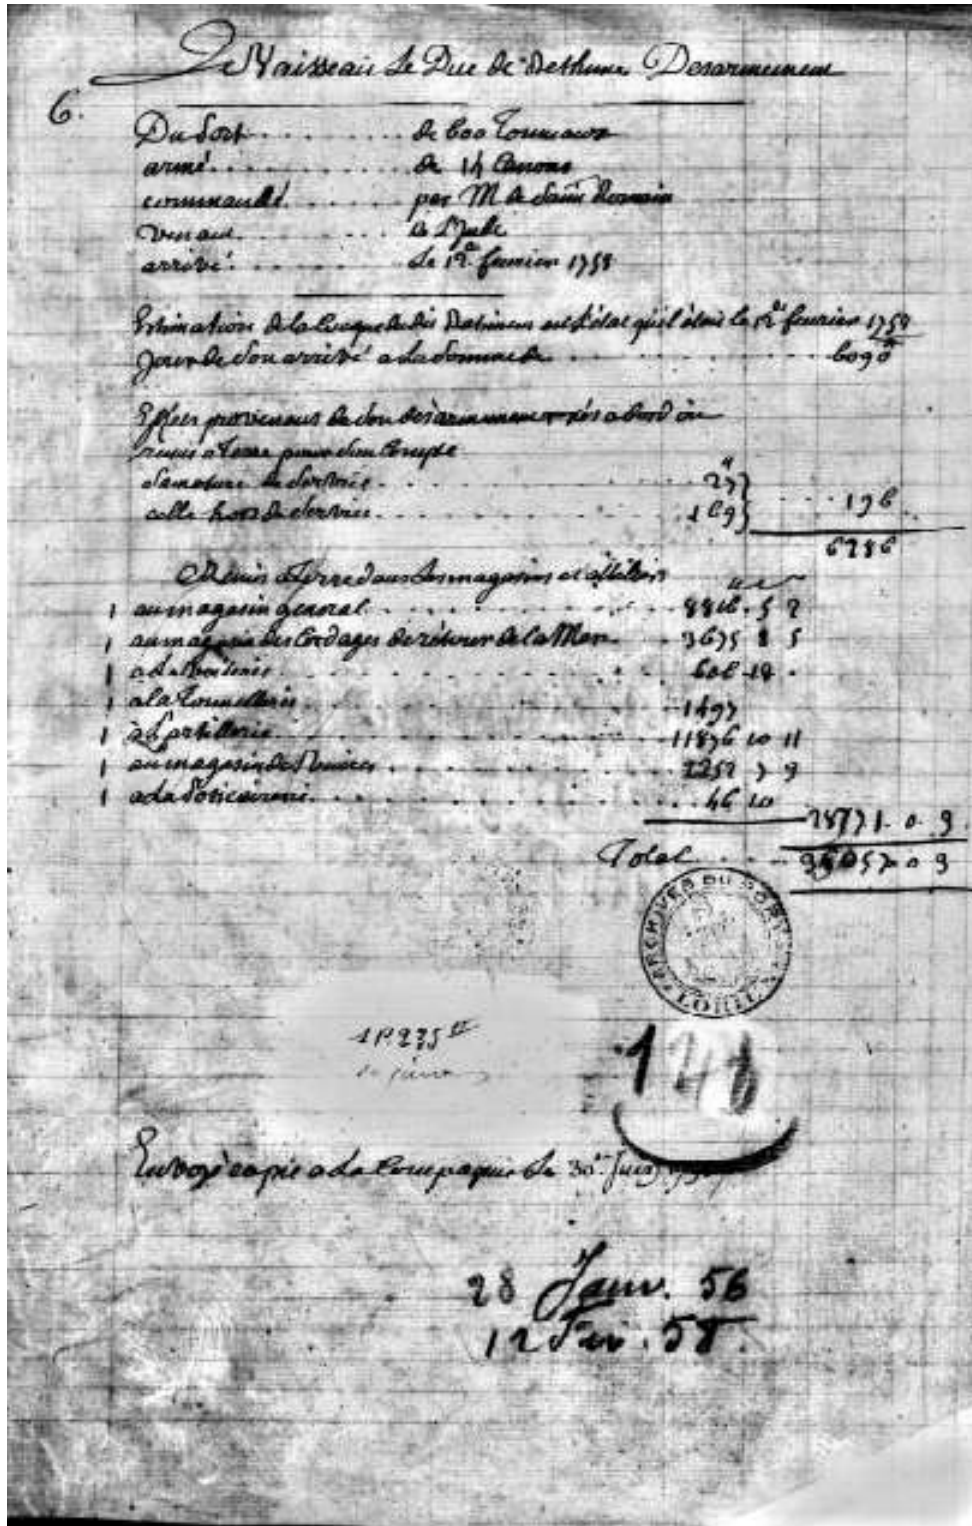 Le Vaisseau Le Duc de Bethune Desarmement
6.
Du Port . . . . de 600 Tonneaux
armé . . . . de 14 Canons
commandé . . . . par M de Saint Romain
venant . . . . de L'Inde
arrivé . . . . Le 12 fevrier 1758
Estimation de la Coque dudit Batiment en L'état qu'il étoit le 12 fevrier 1758
Jour de Son arrivé a La Somme de . . . . 6090
Effets provenans de Son desarmement a bord ou
a Terre pour Son Compte
de Service . . . . 277
hors de Service . . . . 196
6286
Remis a Terre dans Les magasins et atteliers
1 au magasin general . . . . 8816 . 5 2
1 au magasin des Cordages de retour de la Mer . . . 3675 8 5
1 a La Voilerie . . . . 606 18 .
1 a la Tonnellerie . . . . 1497
1 a L'artillerie . . . . 11876 10 11
1 au magasin de Vivres . . . . 2252 7 9
1 a La . . . . 46 10
28771 . 0 . 9
Total . . . . 35057 . 0 9
ARCHIVES DU PORT LORIENT
1P 275
Envoyé copie a La Compagnie Le 30 Juin
28 Janv. 56
12 Fév. 58.